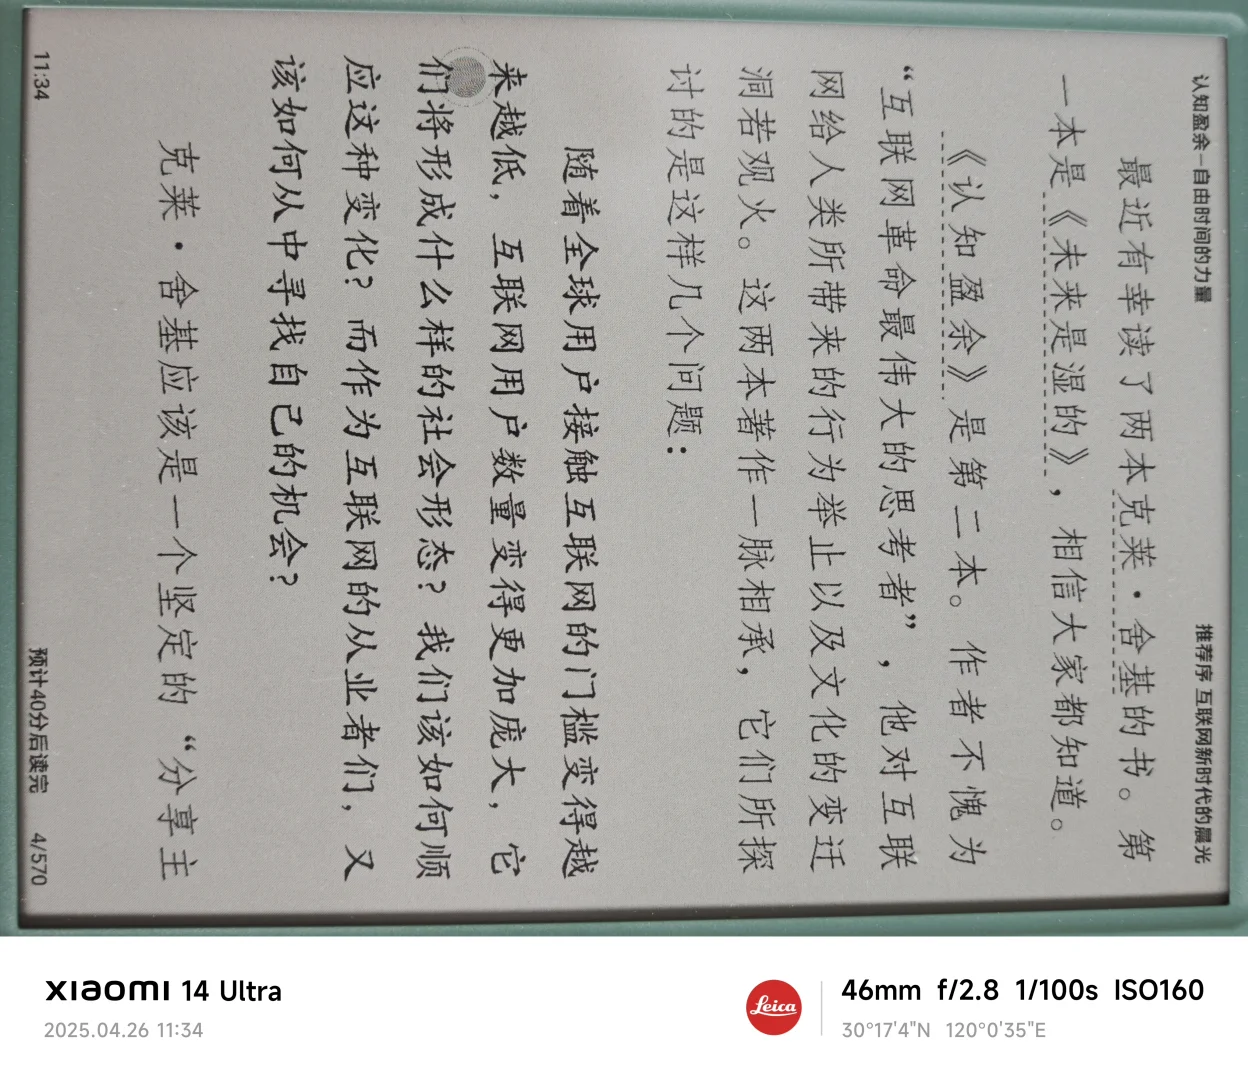 认知盈余-自由时间的力量 推荐序 互联网新时代的晨光
最近有幸读了两本克莱·舍基的书。第
一本是《未来是湿的》，相信大家都知道。
《认知盈余》是第二本。作者不愧为
“互联网革命最伟大的思考者”，他对互联
网给人类所带来的行为举止以及文化的变迁
洞若观火。这两本著作一脉相承，它们所探
讨的是这样几个问题：
随着全球用户接触互联网的门槛变得越
来越低，互联网用户数量变得更加庞大，它
们将形成什么样的社会形态？我们该如何顺
应这种变化？而作为互联网的从业者们，又
该如何从中寻找自己的机会？
克莱·舍基应该是一个坚定的“分享主
11:34 预计40分后读完 4/570
XIAOMI 14 Ultra
2025.04.26 11:34
Leica
46mm f/2.8 1/100s ISO160
30°17'4"N 120°0'35"E